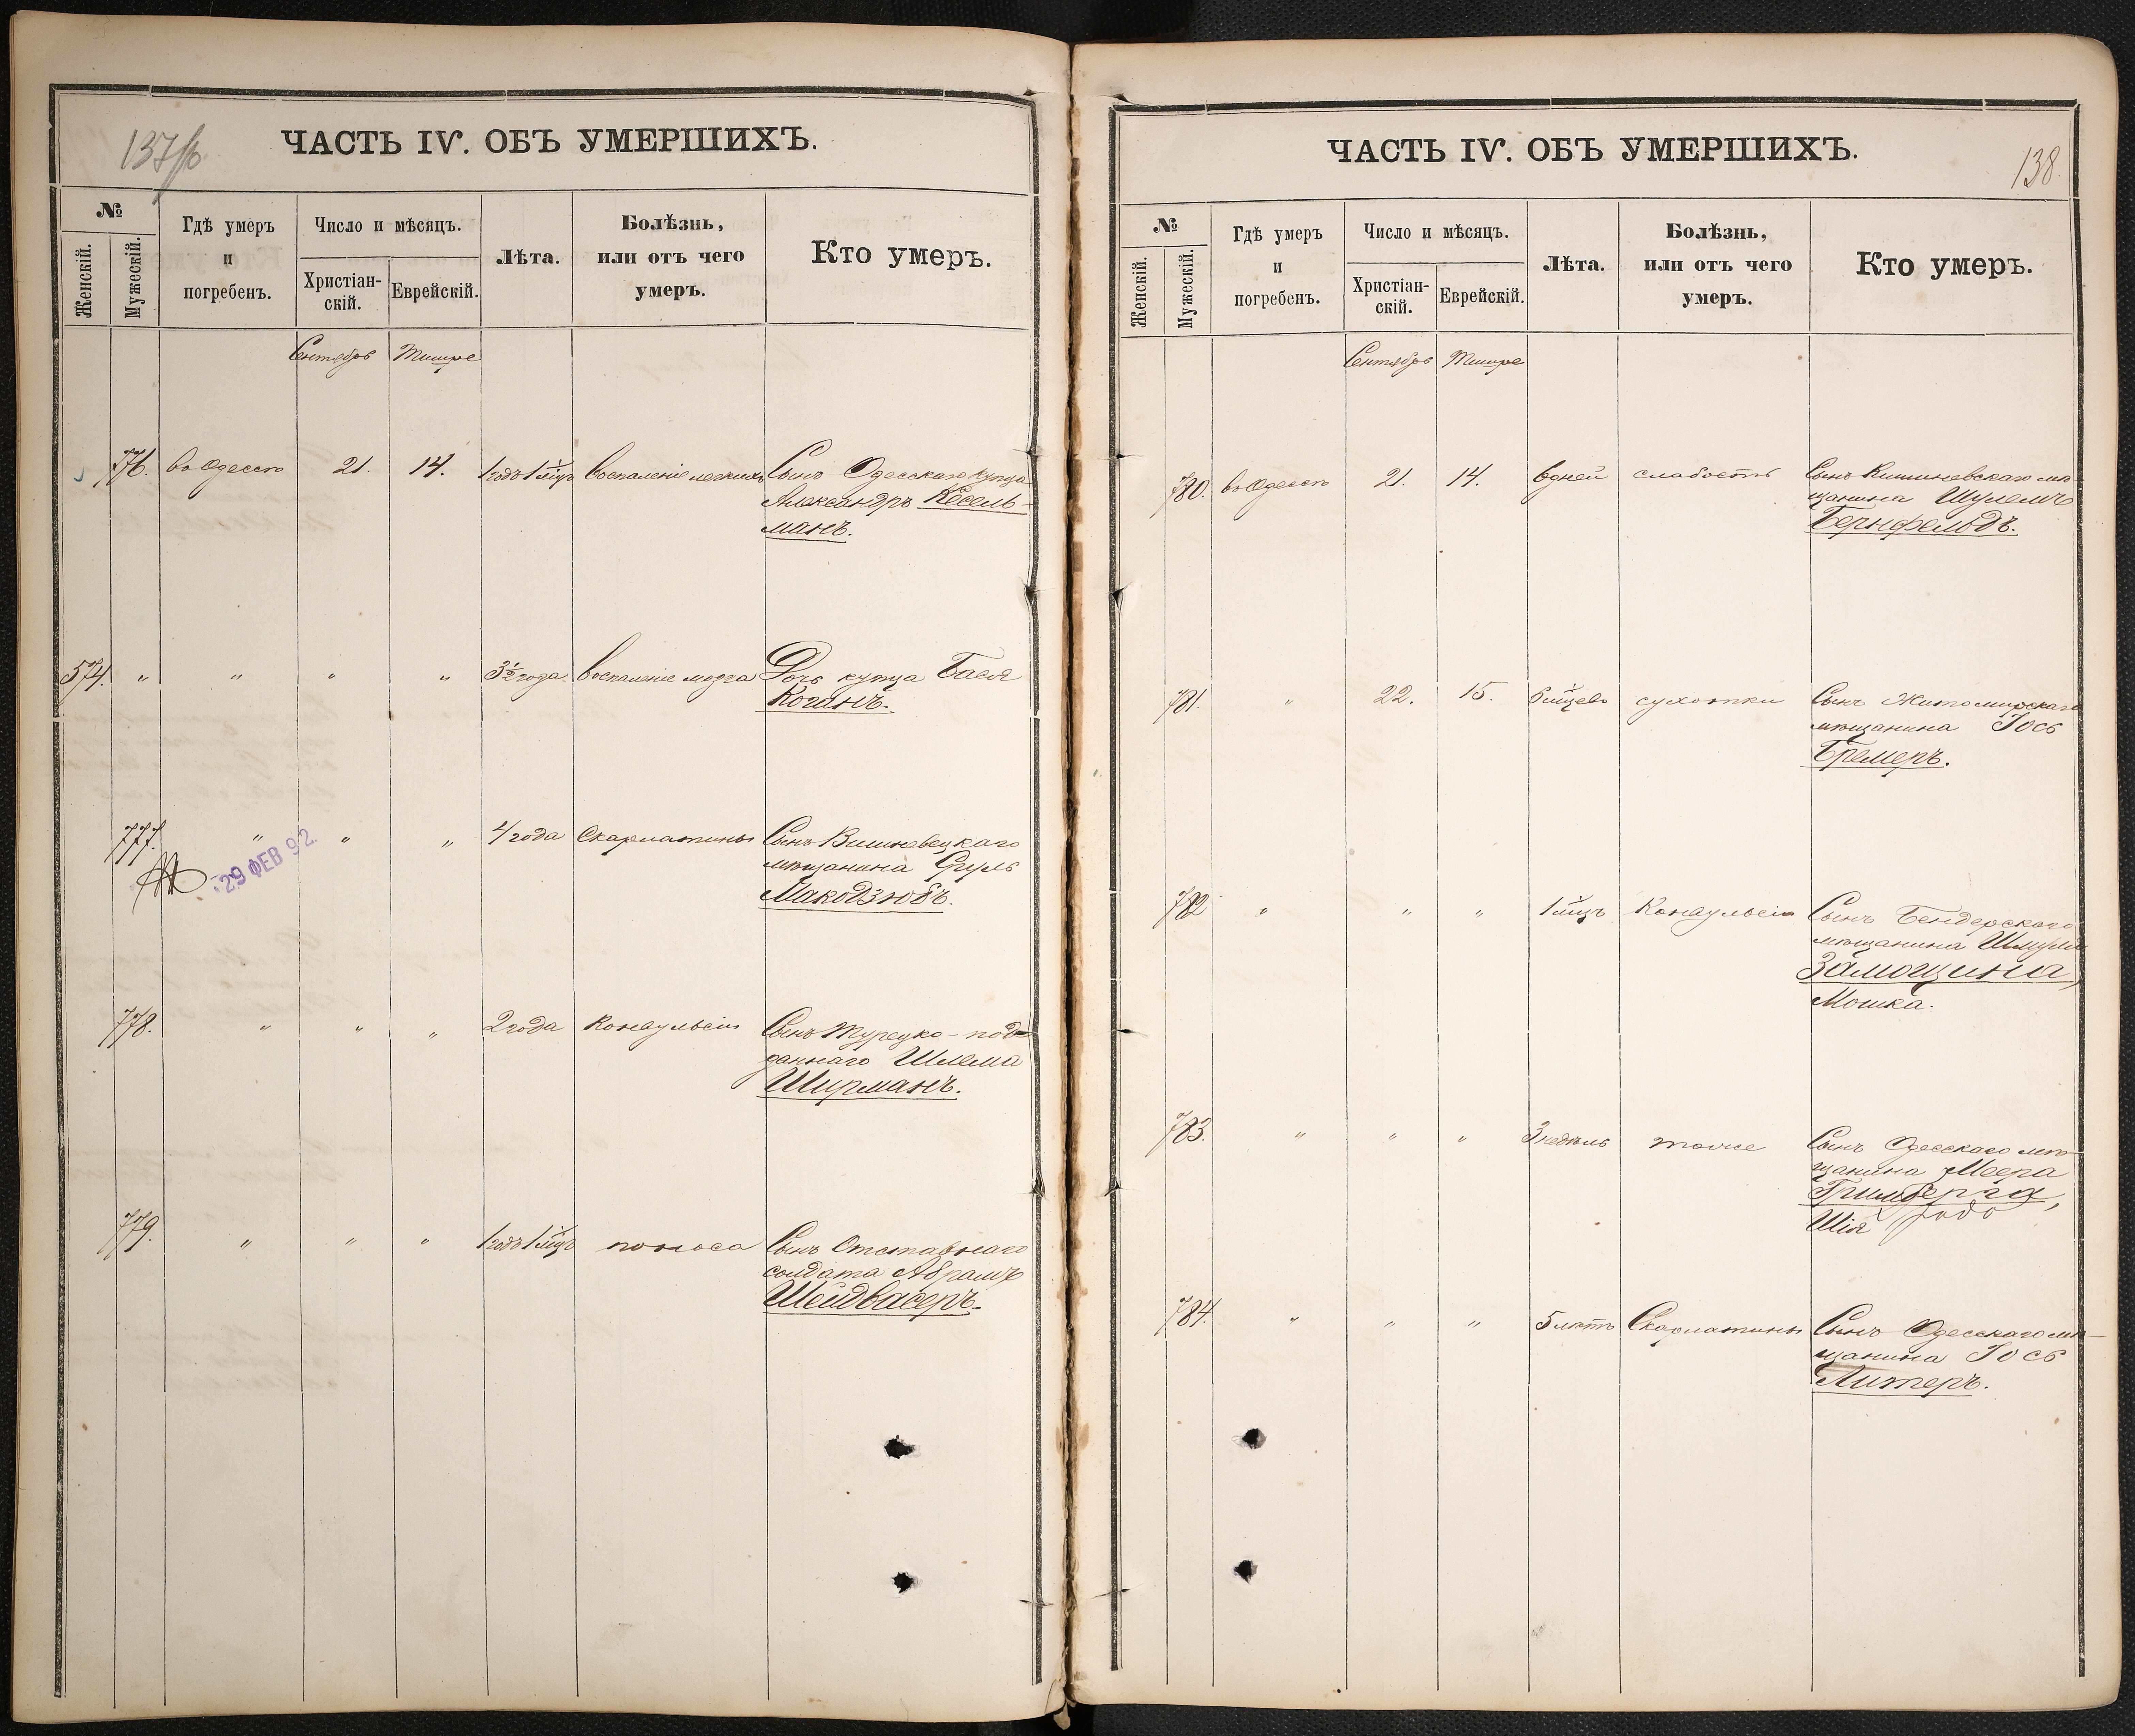 137/об
ЧАСТЬ IV. ОБЪ УМЕРШИХЪ.
№
Женскій.
Мужескій.
Гдѣ умеръ
и
погребенъ.
Число и мѣсяцъ.
Христіан-
скій.
Еврейскій.
Лѣта.
Болѣзнь,
или отъ чего
умеръ.
Кто умеръ.
Сентябрь Тишре
776. въ Одессѣ 21. 14. 1 годъ 1 мцъ Воспаленіе легкихъ Сынъ Одесскаго купца
Александръ Кесель-
манъ.
574. " " " " 3½ года Воспаленіе мозга Дочь купца Бася
Коганъ.
777. " " " 4 года Скарлатины Сынъ Вишневецкаго
мѣщанина Сруль
Макодзюбъ.
29 ФЕВ 92
778. " " " 2 года Конвульсіи Сынъ Турецко-под-
даннаго Шлема
Ширманъ.
779. " " " 1 годъ 1 мцъ поноса Сынъ Отставнаго
солдата Абрамъ
Шейдвасеръ.
138.
ЧАСТЬ IV. ОБЪ УМЕРШИХЪ.
№
Женскій.
Мужескій.
Гдѣ умеръ
и
погребенъ.
Число и мѣсяцъ.
Христіан-
скій.
Еврейскій.
Лѣта.
Болѣзнь,
или отъ чего
умеръ.
Кто умеръ.
Сентябрь Тишре
780. въ Одессѣ 21. 14. 6 дней слабость Сынъ Кишиневскаго мѣ-
щанина Шулемъ
Бернфельдъ.
781. " 22. 15. 6 мцевъ сухотки Сынъ Житомирскаго
мѣщанина Іось
Бремеръ.
782 " " " 1 мцъ Конвульсіи Сынъ Бендерскаго
мѣщанина Шмуля
Замощина,
Мошка.
783. " " " 3 недѣль тоже Сынъ Одесскаго мѣ-
щанина Меера
Гринберга,
Шія
784. " " " 5 лѣтъ Скарлатины Сынъ Одесскаго мѣ-
щанина Іось
Литеръ.